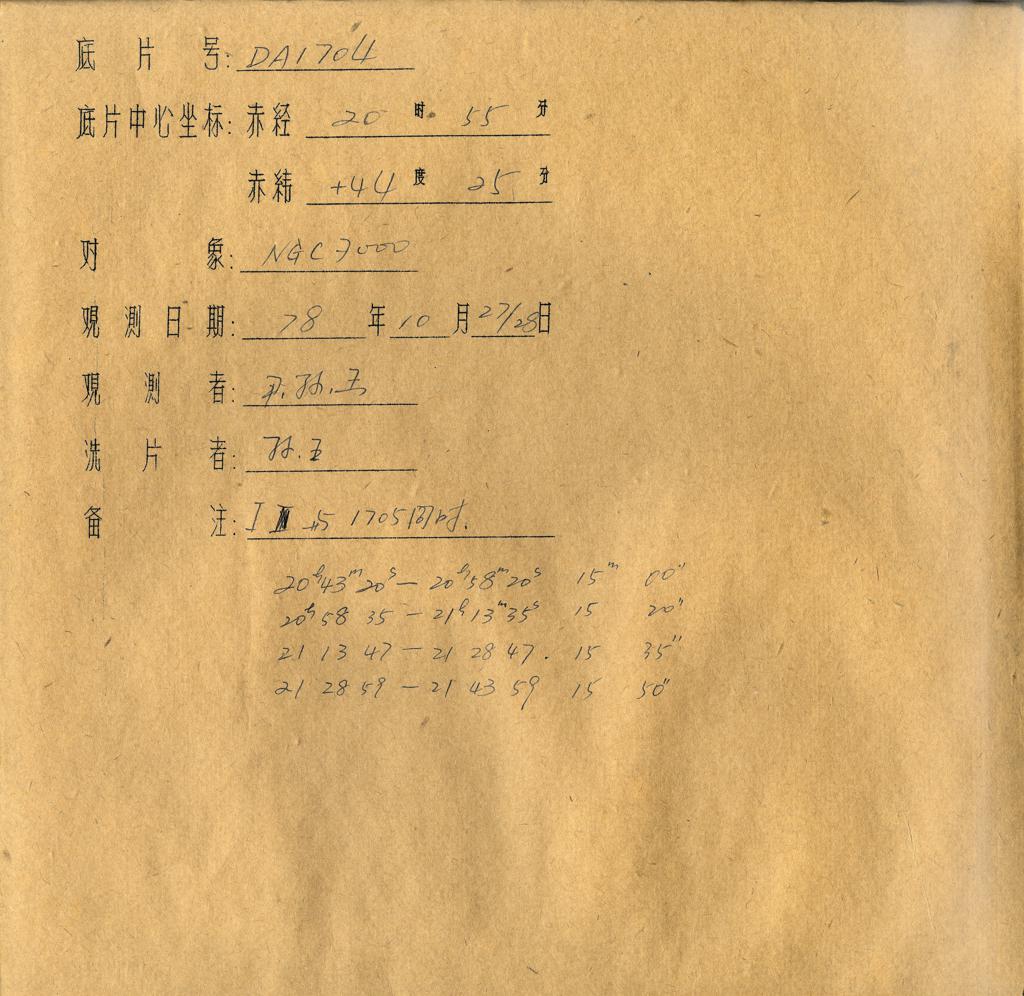 底片号: DA1704
底片中心坐标: 赤经 20时 55分
赤纬 +44度 25分
对象: NGC7000
观测日期: 78年10月27/28日
观测者: 尹.孙.王
洗片者: 孙.王
备注: I 与 1705同时.
20h43m20s — 20h58m20s 15m 00"
20h58 35 — 21h13m35s 15 20"
21 13 47 — 21 28 47. 15 35"
21 28 59 — 21 43 59 15 50"